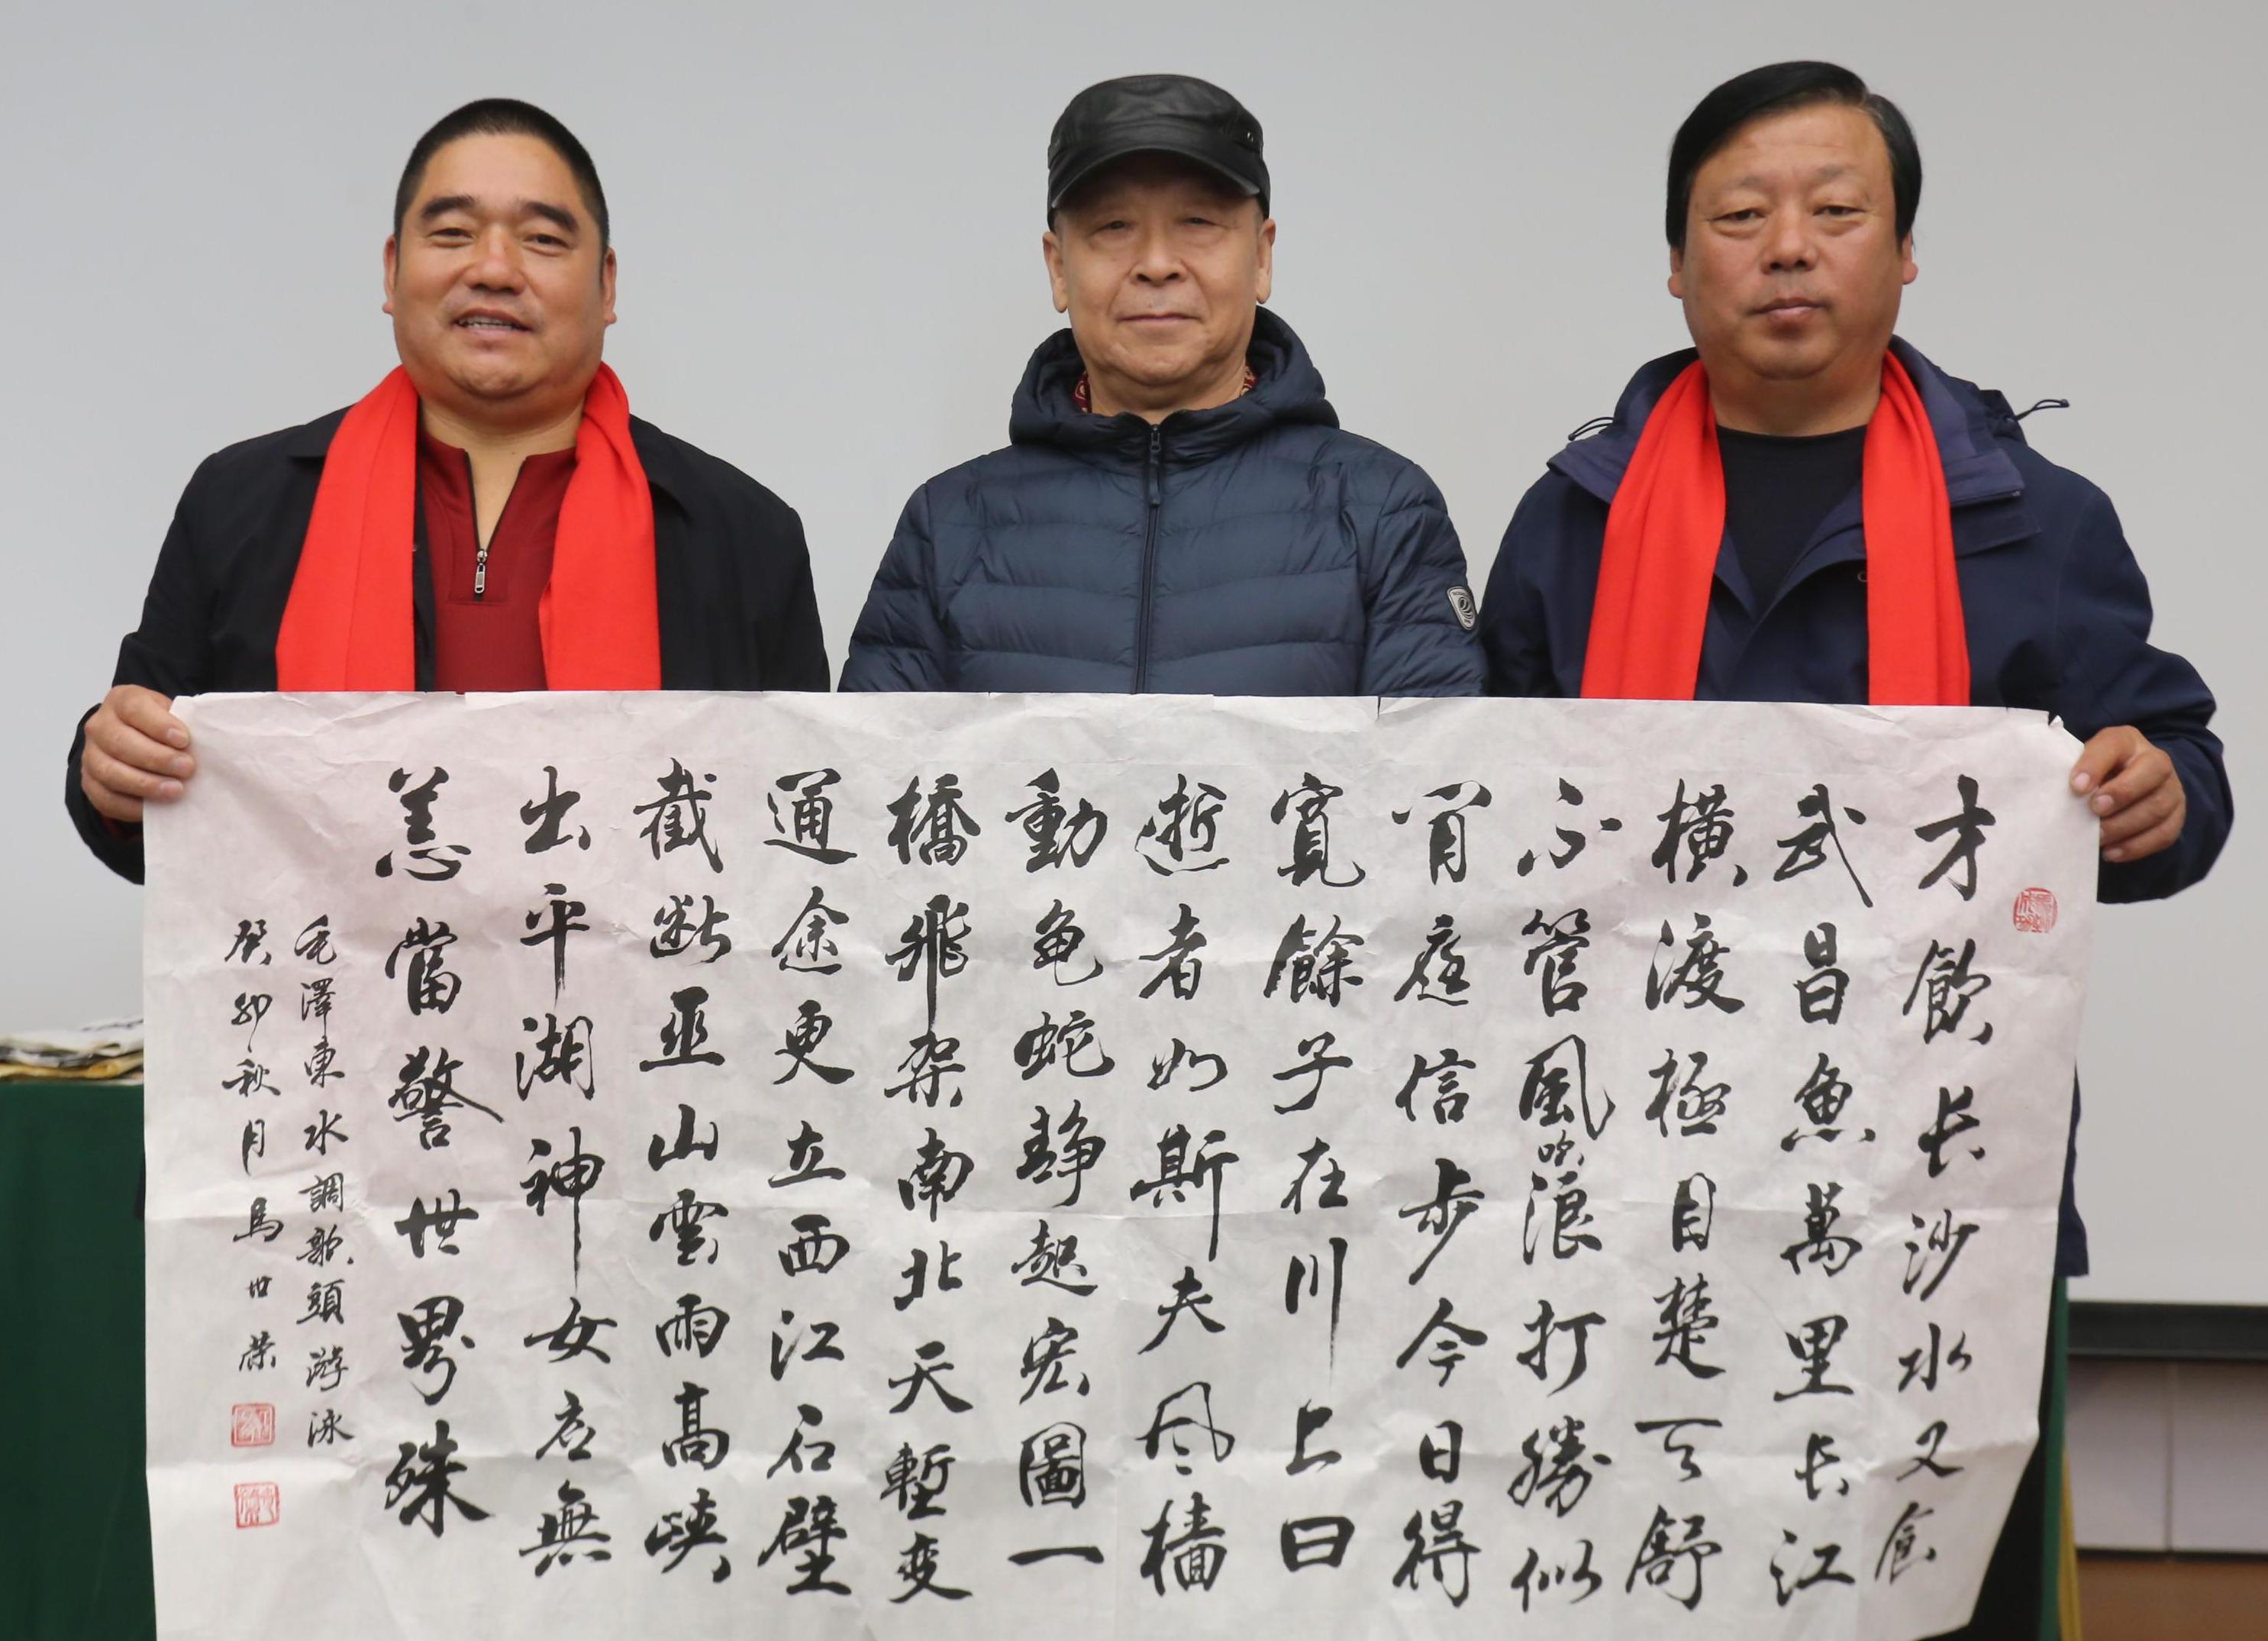 才飲长沙水又食
武昌魚萬里长江
横渡極目楚天舒
不管風吹浪打勝似
閒庭信步今日得
寬餘子在川上曰
逝者如斯夫风檣
動龟蛇靜起宏圖一
橋飛架南北天塹变
通途更立西江石壁
截断巫山雲雨高峡
出平湖神女应無
恙當警世界殊
毛澤東水調歌頭游泳
癸卯秋月馬世荣